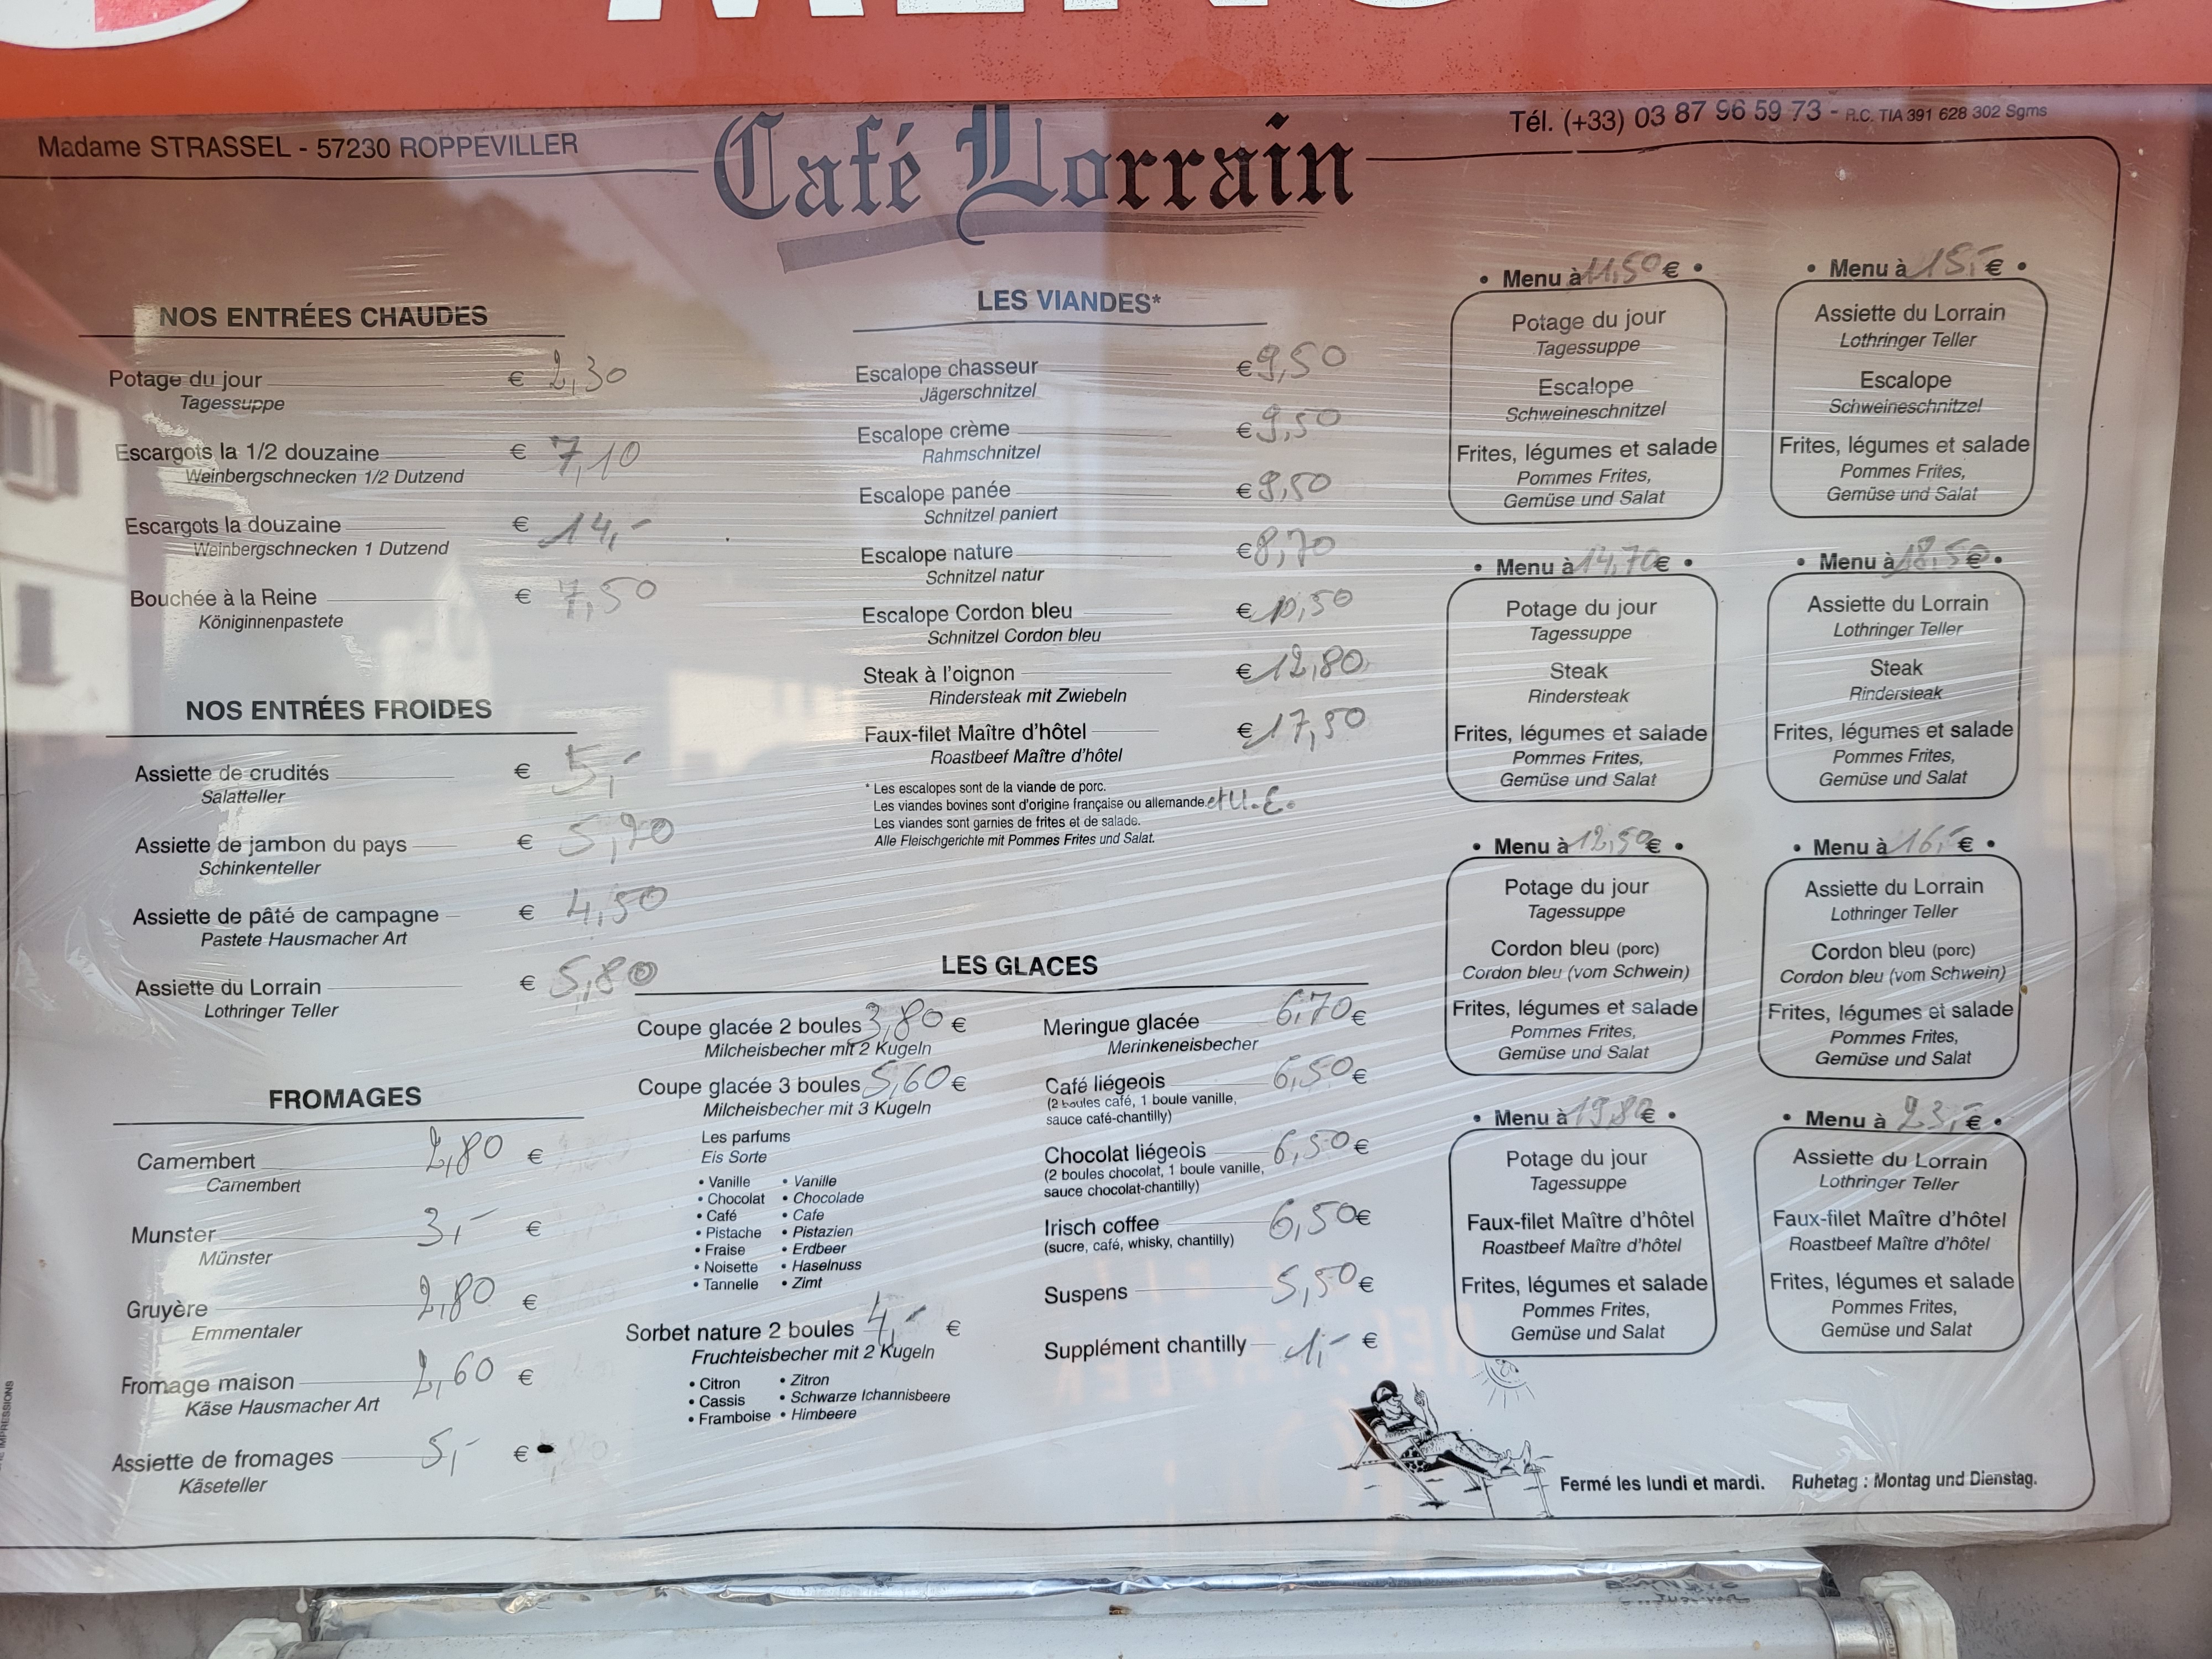 Madame STRASSEL - 57230 ROPPEVILLER
Café Lorrain
Tél. (+33) 03 87 96 59 73 - R.C. TIA 391 628 302 Sgms
NOS ENTRÉES CHAUDES
Potage du jour € 2,30
Tagessuppe
Escargots la 1/2 douzaine € 7,10
Weinbergschnecken 1/2 Dutzend
Escargots la douzaine € 14,-
Weinbergschnecken 1 Dutzend
Bouchée à la Reine € 7,50
Königinnenpastete
NOS ENTRÉES FROIDES
Assiette de crudités € 5,-
Salatteller
Assiette de jambon du pays €
Schinkenteller
Assiette de pâté de campagne € 4,50
Pastete Hausmacher Art
Assiette du Lorrain € 5,80
Lothringer Teller
FROMAGES
Camembert 2,80 €
Camembert
Munster 3,- €
Münster
Gruyère 2,80 €
Emmentaler
Fromage maison 2,60 €
Käse Hausmacher Art
Assiette de fromages 5,- €
Käseteller
LES VIANDES*
Escalope chasseur €9,50
Jägerschnitzel
Escalope crème €9,50
Rahmschnitzel
Escalope panée €9,50
Schnitzel paniert
Escalope nature €8,70
Schnitzel natur
Escalope Cordon bleu €10,50
Schnitzel Cordon bleu
Steak à l'oignon €12,80
Rindersteak mit Zwiebeln
Faux-filet Maître d'hôtel €17,50
Roastbeef Maître d'hôtel
* Les escalopes sont de la viande de porc.
Les viandes bovines sont d'origine française ou allemande et U.E.
Les viandes sont garnies de frites et de salade.
Alle Fleischgerichte mit Pommes Frites und Salat.
LES GLACES
Coupe glacée 2 boules 3,80 €
Milcheisbecher mit 2 Kugeln
Coupe glacée 3 boules 5,60 €
Milcheisbecher mit 3 Kugeln
Les parfums
Eis Sorte
• Vanille • Vanille
• Chocolat • Chocolade
• Café • Cafe
• Pistache • Pistazien
• Fraise • Erdbeer
• Noisette • Haselnuss
• Tannelle • Zimt
Sorbet nature 2 boules 4,- €
Fruchteisbecher mit 2 Kugeln
• Citron • Zitron
• Cassis • Schwarze Ichannisbeere
• Framboise • Himbeere
Meringue glacée 6,70€
Merinkeneisbecher
Café liégeois 6,50€
(2 boules café, 1 boule vanille,
sauce café-chantilly)
Chocolat liégeois 6,50€
(2 boules chocolat, 1 boule vanille,
sauce chocolat-chantilly)
Irisch coffee 6,50€
(sucre, café, whisky, chantilly)
Suspens 5,50€
Supplément chantilly 1,- €
• Menu à 11,50€ •
Potage du jour
Tagessuppe
Escalope
Schweineschnitzel
Frites, légumes et salade
Pommes Frites,
Gemüse und Salat
• Menu à 15,-€ •
Assiette du Lorrain
Lothringer Teller
Escalope
Schweineschnitzel
Frites, légumes et salade
Pommes Frites,
Gemüse und Salat
• Menu à 14,70€ •
Potage du jour
Tagessuppe
Steak
Rindersteak
Frites, légumes et salade
Pommes Frites,
Gemüse und Salat
• Menu à 18,50€ •
Assiette du Lorrain
Lothringer Teller
Steak
Rindersteak
Frites, légumes et salade
Pommes Frites,
Gemüse und Salat
• Menu à 12,50€ •
Potage du jour
Tagessuppe
Cordon bleu (porc)
Cordon bleu (vom Schwein)
Frites, légumes et salade
Pommes Frites,
Gemüse und Salat
• Menu à 16,-€ •
Assiette du Lorrain
Lothringer Teller
Cordon bleu (porc)
Cordon bleu (vom Schwein)
Frites, légumes et salade
Pommes Frites,
Gemüse und Salat
• Menu à 19,80€ •
Potage du jour
Tagessuppe
Faux-filet Maître d'hôtel
Roastbeef Maître d'hôtel
Frites, légumes et salade
Pommes Frites,
Gemüse und Salat
• Menu à 23,-€ •
Assiette du Lorrain
Lothringer Teller
Faux-filet Maître d'hôtel
Roastbeef Maître d'hôtel
Frites, légumes et salade
Pommes Frites,
Gemüse und Salat
Fermé les lundi et mardi. Ruhetag : Montag und Dienstag.
IMPRESSIONS